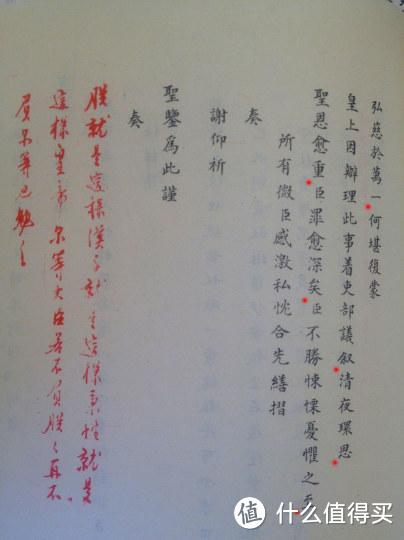 弘慈於萬一何堪復蒙
皇上因辦理此事着吏部議叙清夜環思
聖恩愈重臣罪愈深矣臣不勝悚慄憂懼之至
所有微臣感激私忱合先繕摺
奏
謝仰祈
聖鑒爲此謹
奏
朕就是這樣漢子就是這樣秉性就是
這樣皇帝尔等大臣若不負朕朕再不
負尔等也勉之
值 什么值得买